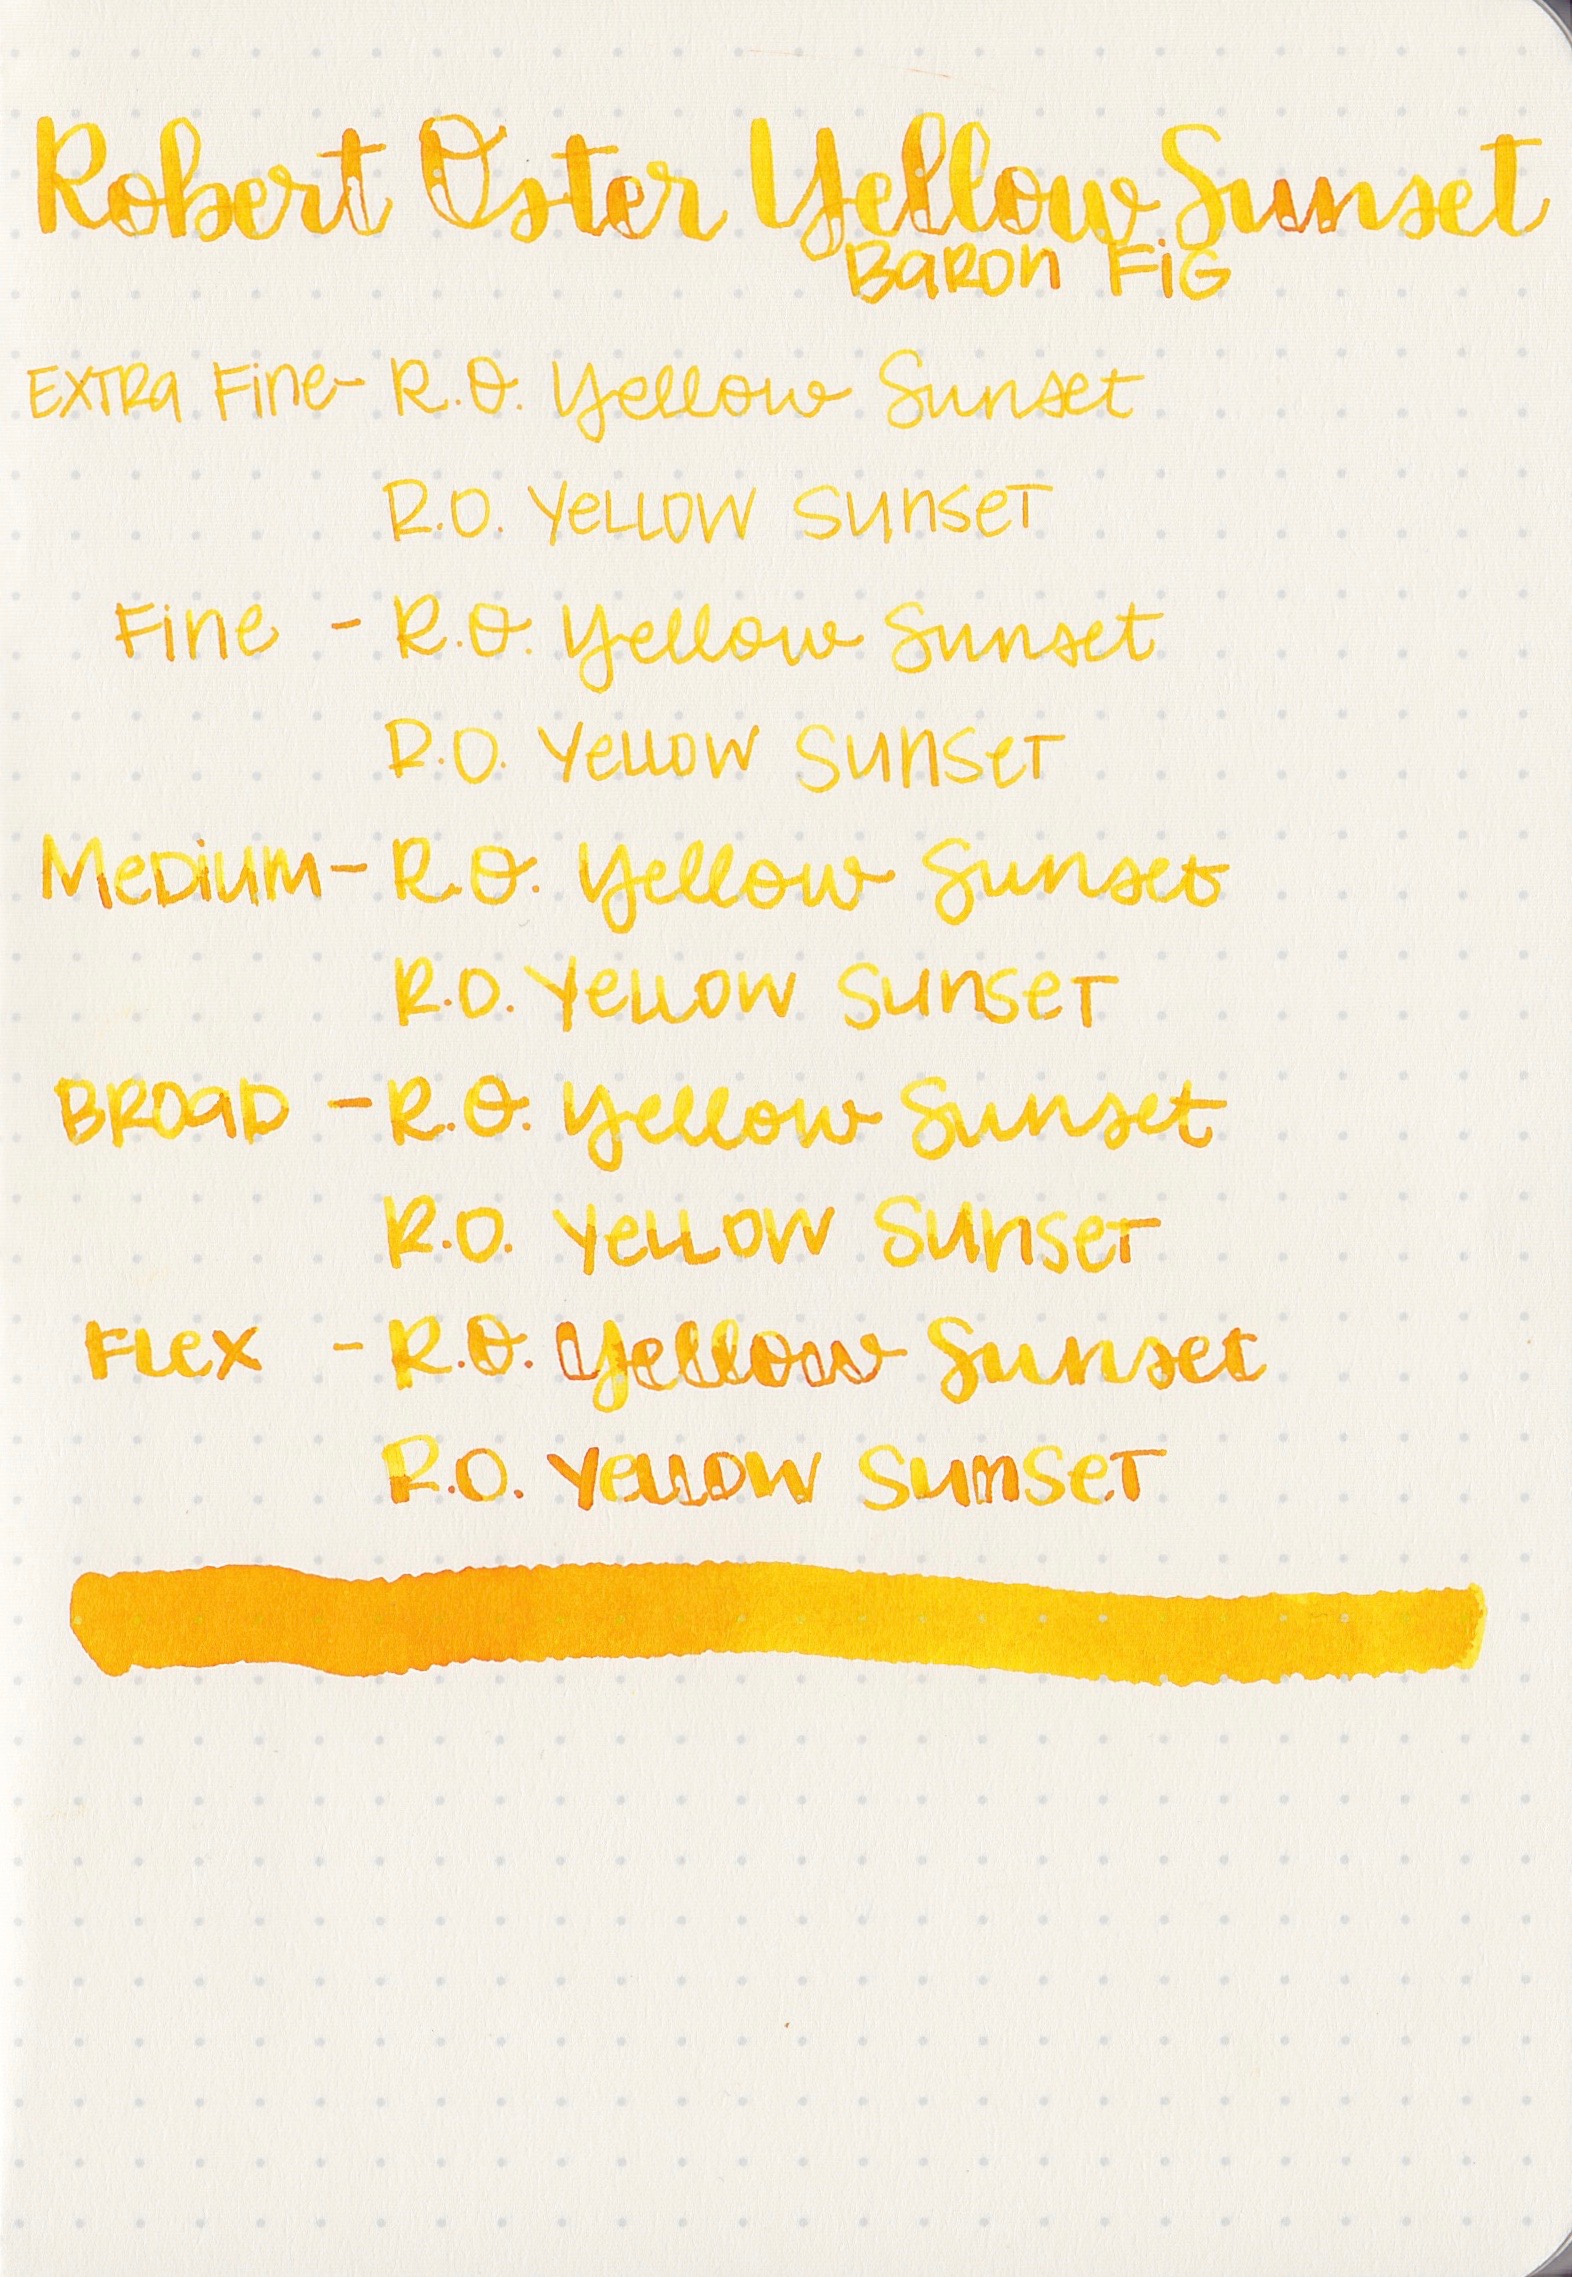 Robert Oster Yellow Sunset
Baron Fig
Extra Fine - R.O. Yellow Sunset
R.O. Yellow Sunset
Fine - R.O. Yellow Sunset
R.O. Yellow Sunset
Medium - R.O. Yellow Sunset
R.O. Yellow Sunset
Broad - R.O. Yellow Sunset
R.O. Yellow Sunset
Flex - R.O. Yellow Sunset
R.O. Yellow Sunset